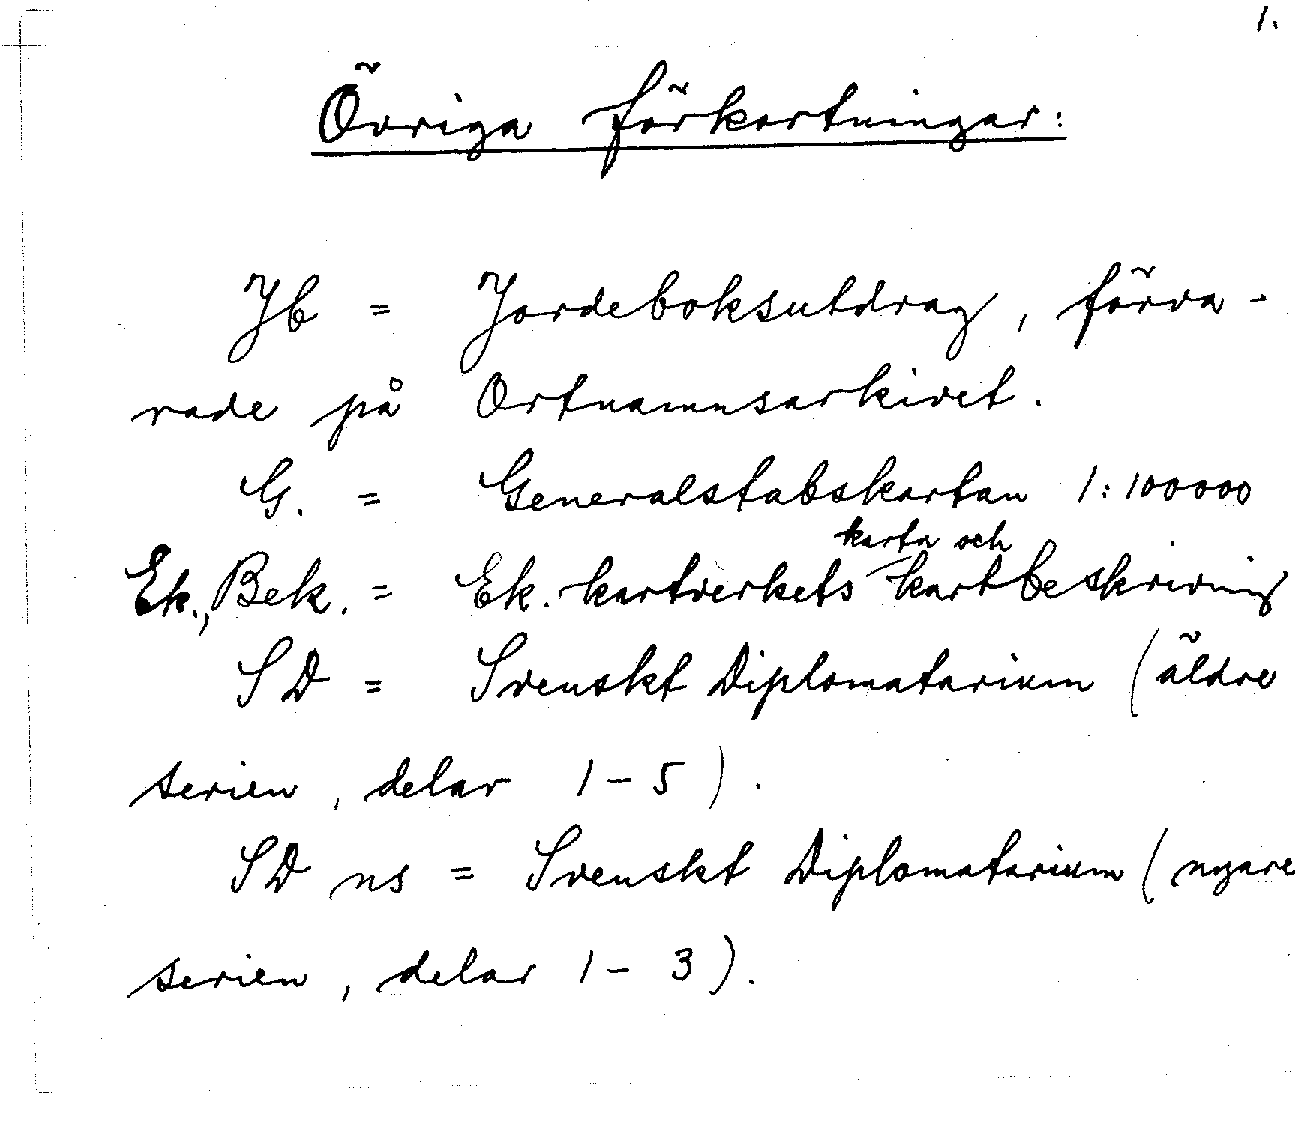 1.
Övriga förkortningar:
Jb = Jordeboksutdrag, förva-
rade på Ortnamnsarkivet.
G. = Generalstabskartan 1:100000
karta och
Ek., Bek. = Ek. kartverkets kartbeskrivning
SD = Svenskt Diplomatarium (äldre
serien, delar 1-5).
SD ns = Svenskt Diplomatarium (nyare
serien, delar 1-3).